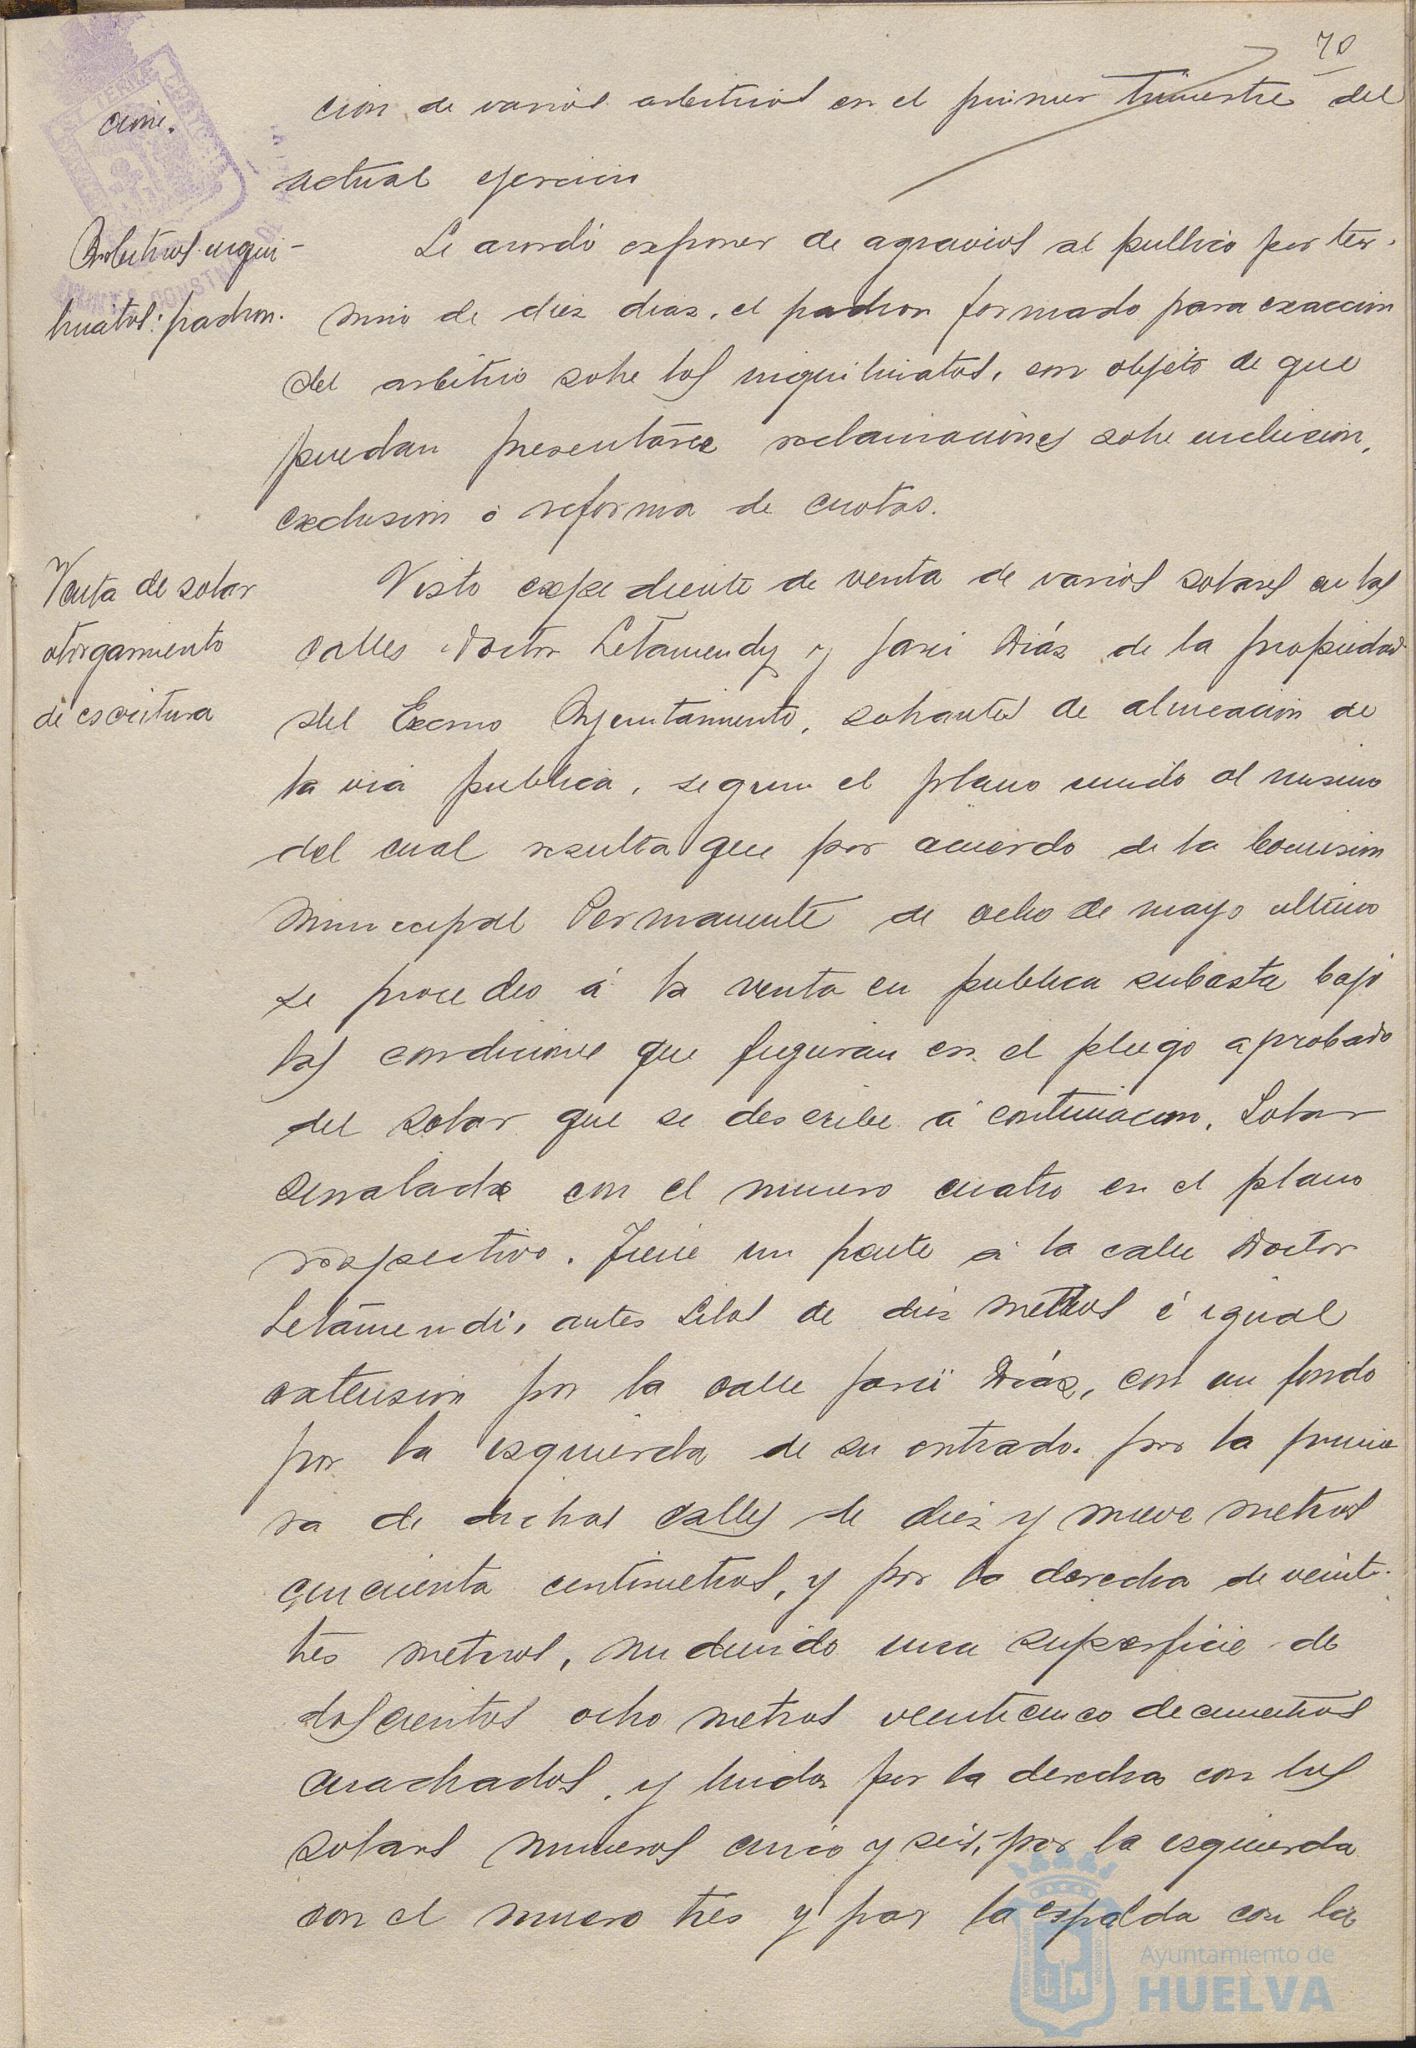 70
cion de varios arbitrios en el primer trimestre del
cion.
actual ejercicio
Arbitrios inqui-
linatos: padron.
Se acordó exponer de agravios al publico por ter-
mino de diez dias, el padron formado para exaccion
del arbitrio sobre los inquilinatos, con objeto de que
puedan presentarse reclamaciones sobre inclusion,
exclusion o reforma de cuotas.
Venta de solar
otorgamiento
de escritura
Visto expediente de venta de varios solares en las
calles Doctor Letamendy y Garci Diáz de la propiedad
del Excmo Ayuntamiento, sobrantes de alineacion de
la via publica, segun el plano unido al mismo
del cual resulta que por acuerdo de la Comision
Municipal Permanente de ocho de mayo ultimo
se procedio á la venta en publica subasta bajo
las condiciones que figuran en el pliego aprobado
del solar que se describe á continuacion. Solar
senalado con el numero cuatro en el plano
respectivo. Tiene un frente á la calle Doctor
Letamendi, antes Silos de diez metros é igual
extension por la calle Garci Diáz, con un fondo
por la izquierda de su entrada por la prime
ra de dichas calles de diez y nueve metros
cincuenta centimetros, y por la derecha de veinte
tres metros, midiendo una superficie de
doscientos ocho metros veinticinco decimetros
cuadrados, y linda por la derecha con los
solares numeros cinco y seis, por la izquierda
con el numero tres y por la espalda con la
Ayuntamiento de
HUELVA